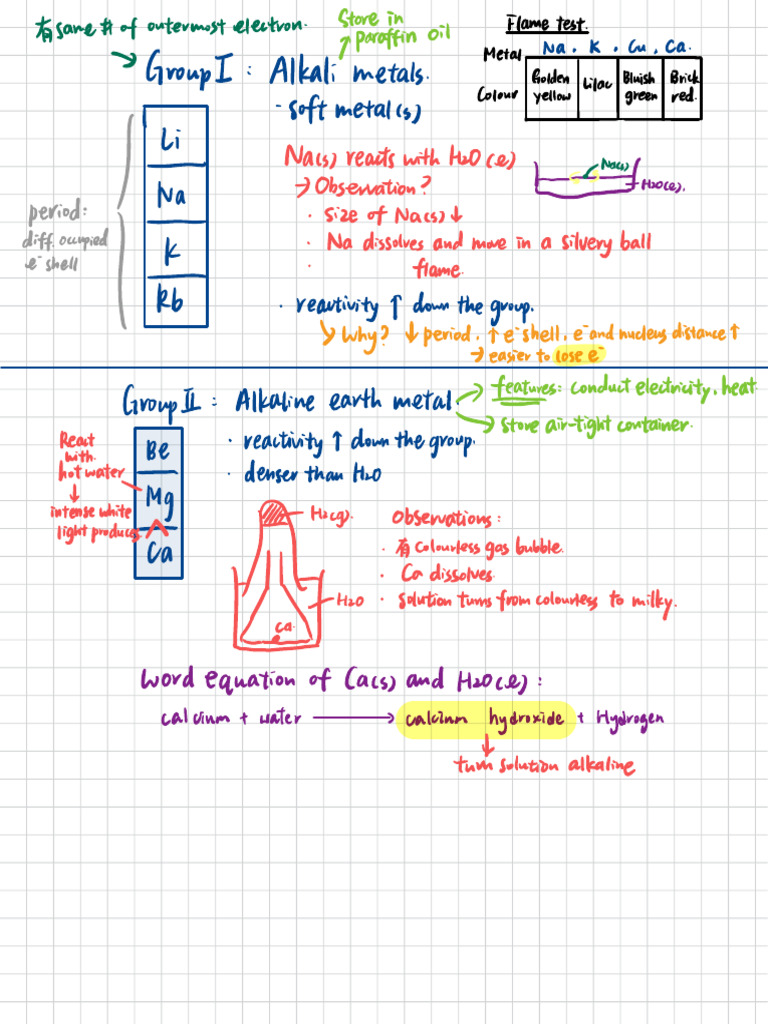 有 same # of outermost electron.
Store in
paraffin oil
Flame test.
Metal Na. K. Cu. Ca.
Colour Golden yellow Lilac Bluish green Brick red.
Group I : Alkali metals.
- soft metal(s)
Li
Na
K
Rb
period:
diff. occupied
e⁻ shell
Na(s) reacts with H2O(l)
→ Observation?
· size of Na(s) ↓
· Na dissolves and move in a silvery ball
· flame.
Na(s)
H2O(l).
· reactivity ↑ down the group.
Why? ↓ period, ↑ e⁻ shell, e⁻ and nucleus distance ↑
→ easier to lose e⁻
Group II : Alkaline earth metal
features: conduct electricity, heat
store air-tight container.
Be
Mg
Ca
· reactivity ↑ down the group.
· denser than H2O
React
with
hot water
↓
intense white
light produces
H2(g).
H2O
Ca.
Observations:
· 有 colourless gas bubble.
· Ca dissolves.
· solution turns from colourless to milky.
Word equation of Ca(s) and H2O(l) :
calcium + water → calcium hydroxide + Hydrogen
↓
turn solution alkaline